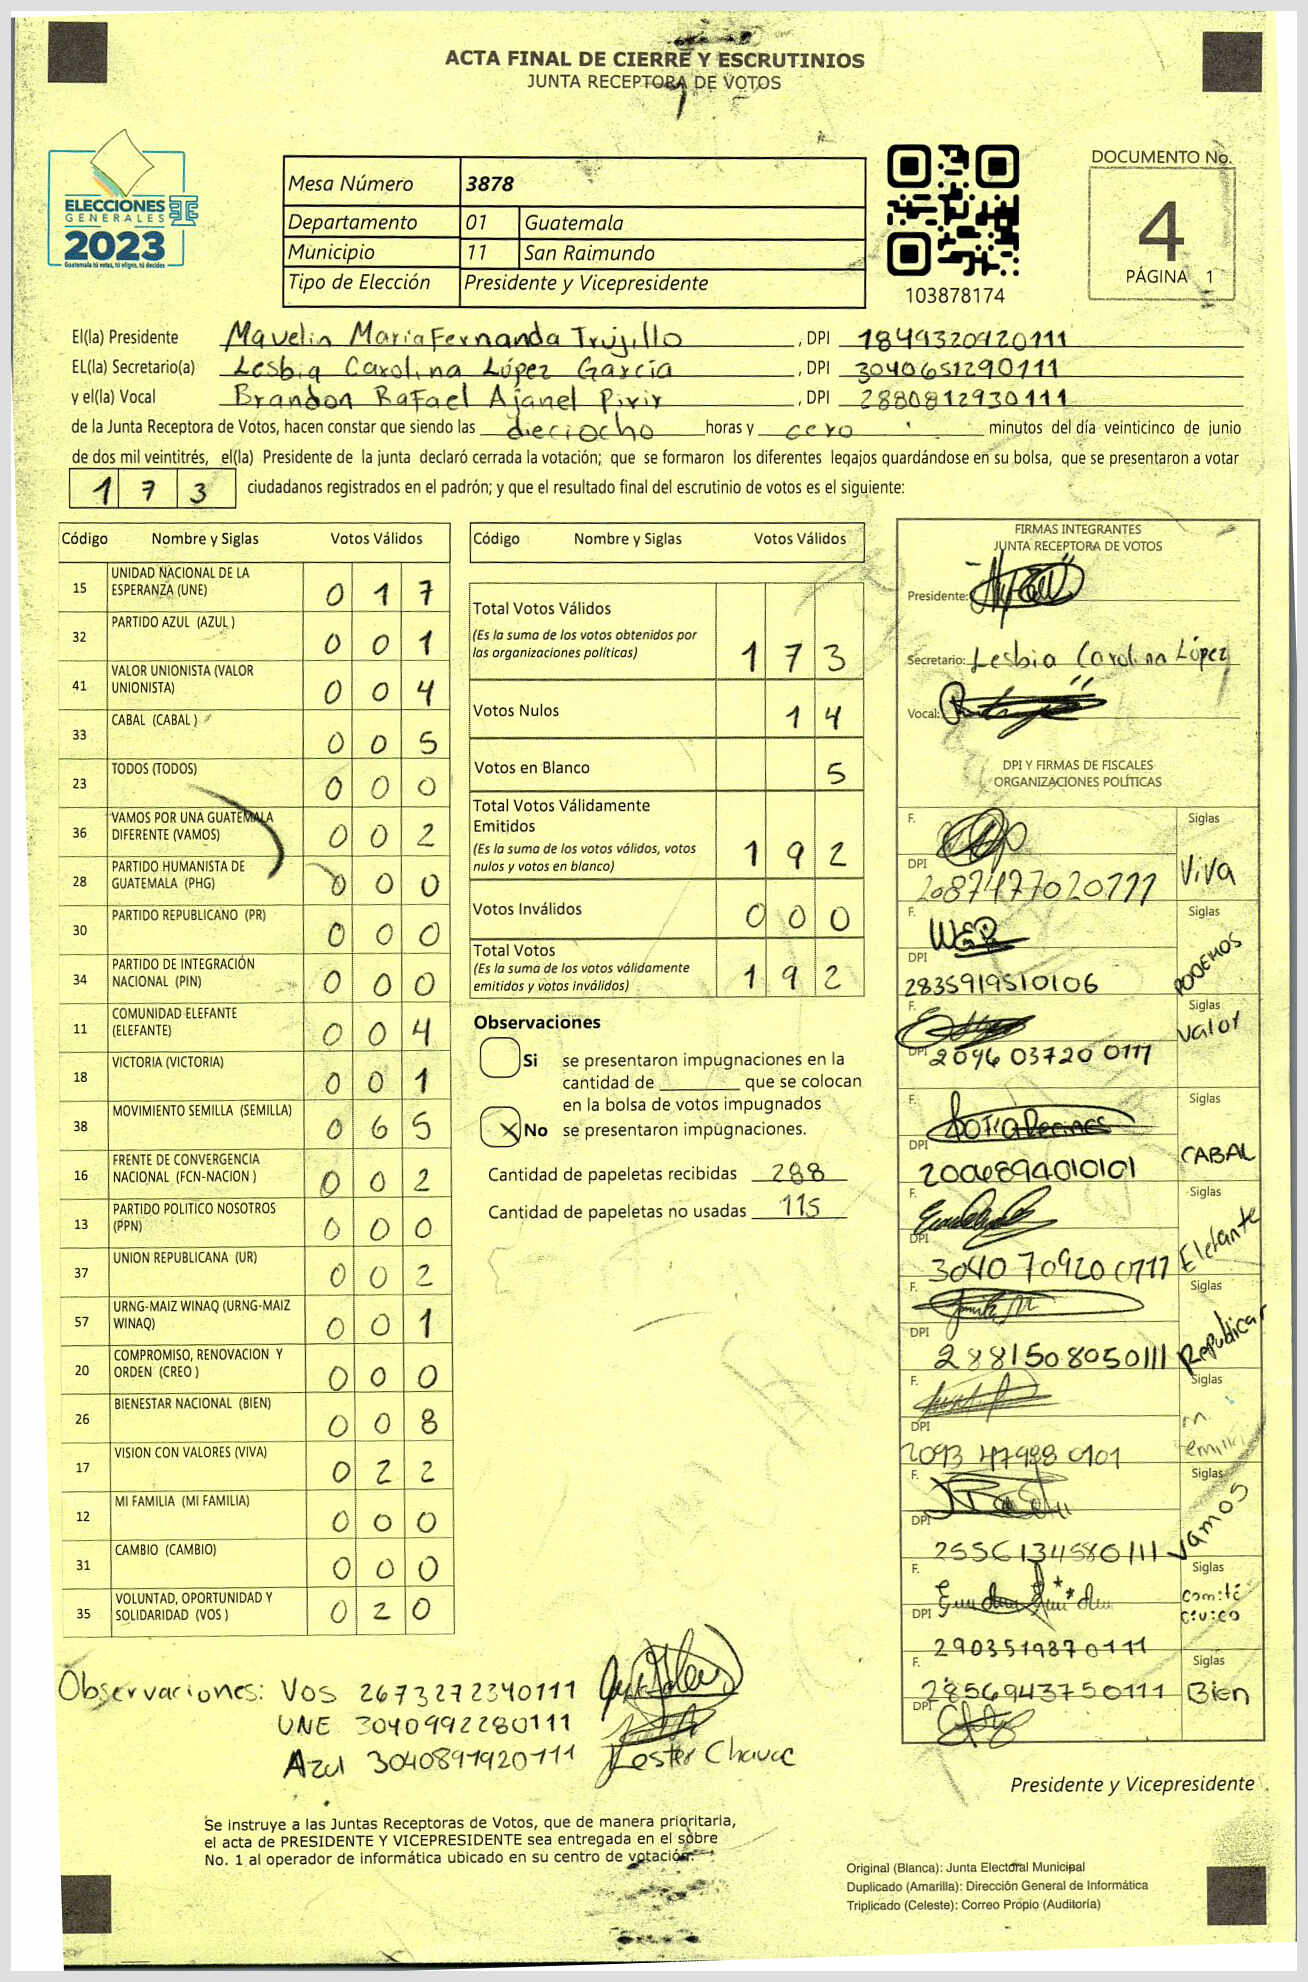 ACTA FINAL DE CIERRE Y ESCRUTINIOS
JUNTA RECEPTORA DE VOTOS
ELECCIONES
GENERALES
2023
Guatemala tú votas, tú eliges, tú decides
Mesa Número 3878
Departamento 01 Guatemala
Municipio 11 San Raimundo
Tipo de Elección Presidente y Vicepresidente
103878174
DOCUMENTO No.
4
PÁGINA 1
El(la) Presidente Mavelin MariaFernanda Trujillo , DPI 1849320920111
EL(la) Secretario(a) Lesbia Carolina López García , DPI 3040651290111
y el(la) Vocal Brandon Rafael Ajanel Pirir , DPI 2880812930111
de la Junta Receptora de Votos, hacen constar que siendo las dieciocho horas y cero minutos del día veinticinco de junio
de dos mil veintitrés, el(la) Presidente de la junta declaró cerrada la votación; que se formaron los diferentes legajos guardándose en su bolsa, que se presentaron a votar
173 ciudadanos registrados en el padrón; y que el resultado final del escrutinio de votos es el siguiente:
Código Nombre y Siglas Votos Válidos
15 UNIDAD NACIONAL DE LA ESPERANZA (UNE) 017
32 PARTIDO AZUL (AZUL ) 001
41 VALOR UNIONISTA (VALOR UNIONISTA) 004
33 CABAL (CABAL ) 005
23 TODOS (TODOS) 000
36 VAMOS POR UNA GUATEMALA DIFERENTE (VAMOS) 002
28 PARTIDO HUMANISTA DE GUATEMALA (PHG) 000
30 PARTIDO REPUBLICANO (PR) 000
34 PARTIDO DE INTEGRACIÓN NACIONAL (PIN) 000
11 COMUNIDAD ELEFANTE (ELEFANTE) 004
18 VICTORIA (VICTORIA) 001
38 MOVIMIENTO SEMILLA (SEMILLA) 065
16 FRENTE DE CONVERGENCIA NACIONAL (FCN-NACION ) 002
13 PARTIDO POLITICO NOSOTROS (PPN) 000
37 UNION REPUBLICANA (UR) 002
57 URNG-MAIZ WINAQ (URNG-MAIZ WINAQ) 001
20 COMPROMISO, RENOVACION Y ORDEN (CREO ) 000
26 BIENESTAR NACIONAL (BIEN) 008
17 VISION CON VALORES (VIVA) 022
12 MI FAMILIA (MI FAMILIA) 000
31 CAMBIO (CAMBIO) 000
35 VOLUNTAD, OPORTUNIDAD Y SOLIDARIDAD (VOS ) 020
Código Nombre y Siglas Votos Válidos
Total Votos Válidos
(Es la suma de los votos obtenidos por
las organizaciones políticas) 173
Votos Nulos 14
Votos en Blanco 5
Total Votos Válidamente
Emitidos
(Es la suma de los votos válidos, votos
nulos y votos en blanco) 192
Votos Inválidos 000
Total Votos
(Es la suma de los votos válidamente
emitidos y votos inválidos) 192
Observaciones
Si se presentaron impugnaciones en la
cantidad de ________ que se colocan
en la bolsa de votos impugnados
X No se presentaron impugnaciones.
Cantidad de papeletas recibidas 288
Cantidad de papeletas no usadas 115
FIRMAS INTEGRANTES
JUNTA RECEPTORA DE VOTOS
Presidente:
Secretario: Lesbia Carolina López
Vocal:
DPI Y FIRMAS DE FISCALES
ORGANIZACIONES POLÍTICAS
F. Siglas
DPI 2087477020111 Viva
F. Siglas
DPI 2835919510106 PODEMOS
F. Siglas
DPI 2096 03720 0111 Valor
F. Siglas
DPI 2006894010101 CABAL
F. Siglas
DPI 3040 70920 0111 Elefante
F. Siglas
DPI 2881508050111 Republicar
F. Siglas
DPI 2093 47988 0101
F. Siglas
DPI 2556134580111 Vamos
F. Siglas
DPI 2903519870111 Comité Cívico
F. Siglas
DPI 2856943750111 Bien
Observaciones: VOS 2673272340111
UNE 3040992280111
Azul 3040891920111 Lester Chavac
Presidente y Vicepresidente
Se instruye a las Juntas Receptoras de Votos, que de manera prioritaria,
el acta de PRESIDENTE Y VICEPRESIDENTE sea entregada en el sobre
No. 1 al operador de informática ubicado en su centro de votación.
Original (Blanca): Junta Electoral Municipal
Duplicado (Amarilla): Dirección General de Informática
Triplicado (Celeste): Correo Propio (Auditoría)